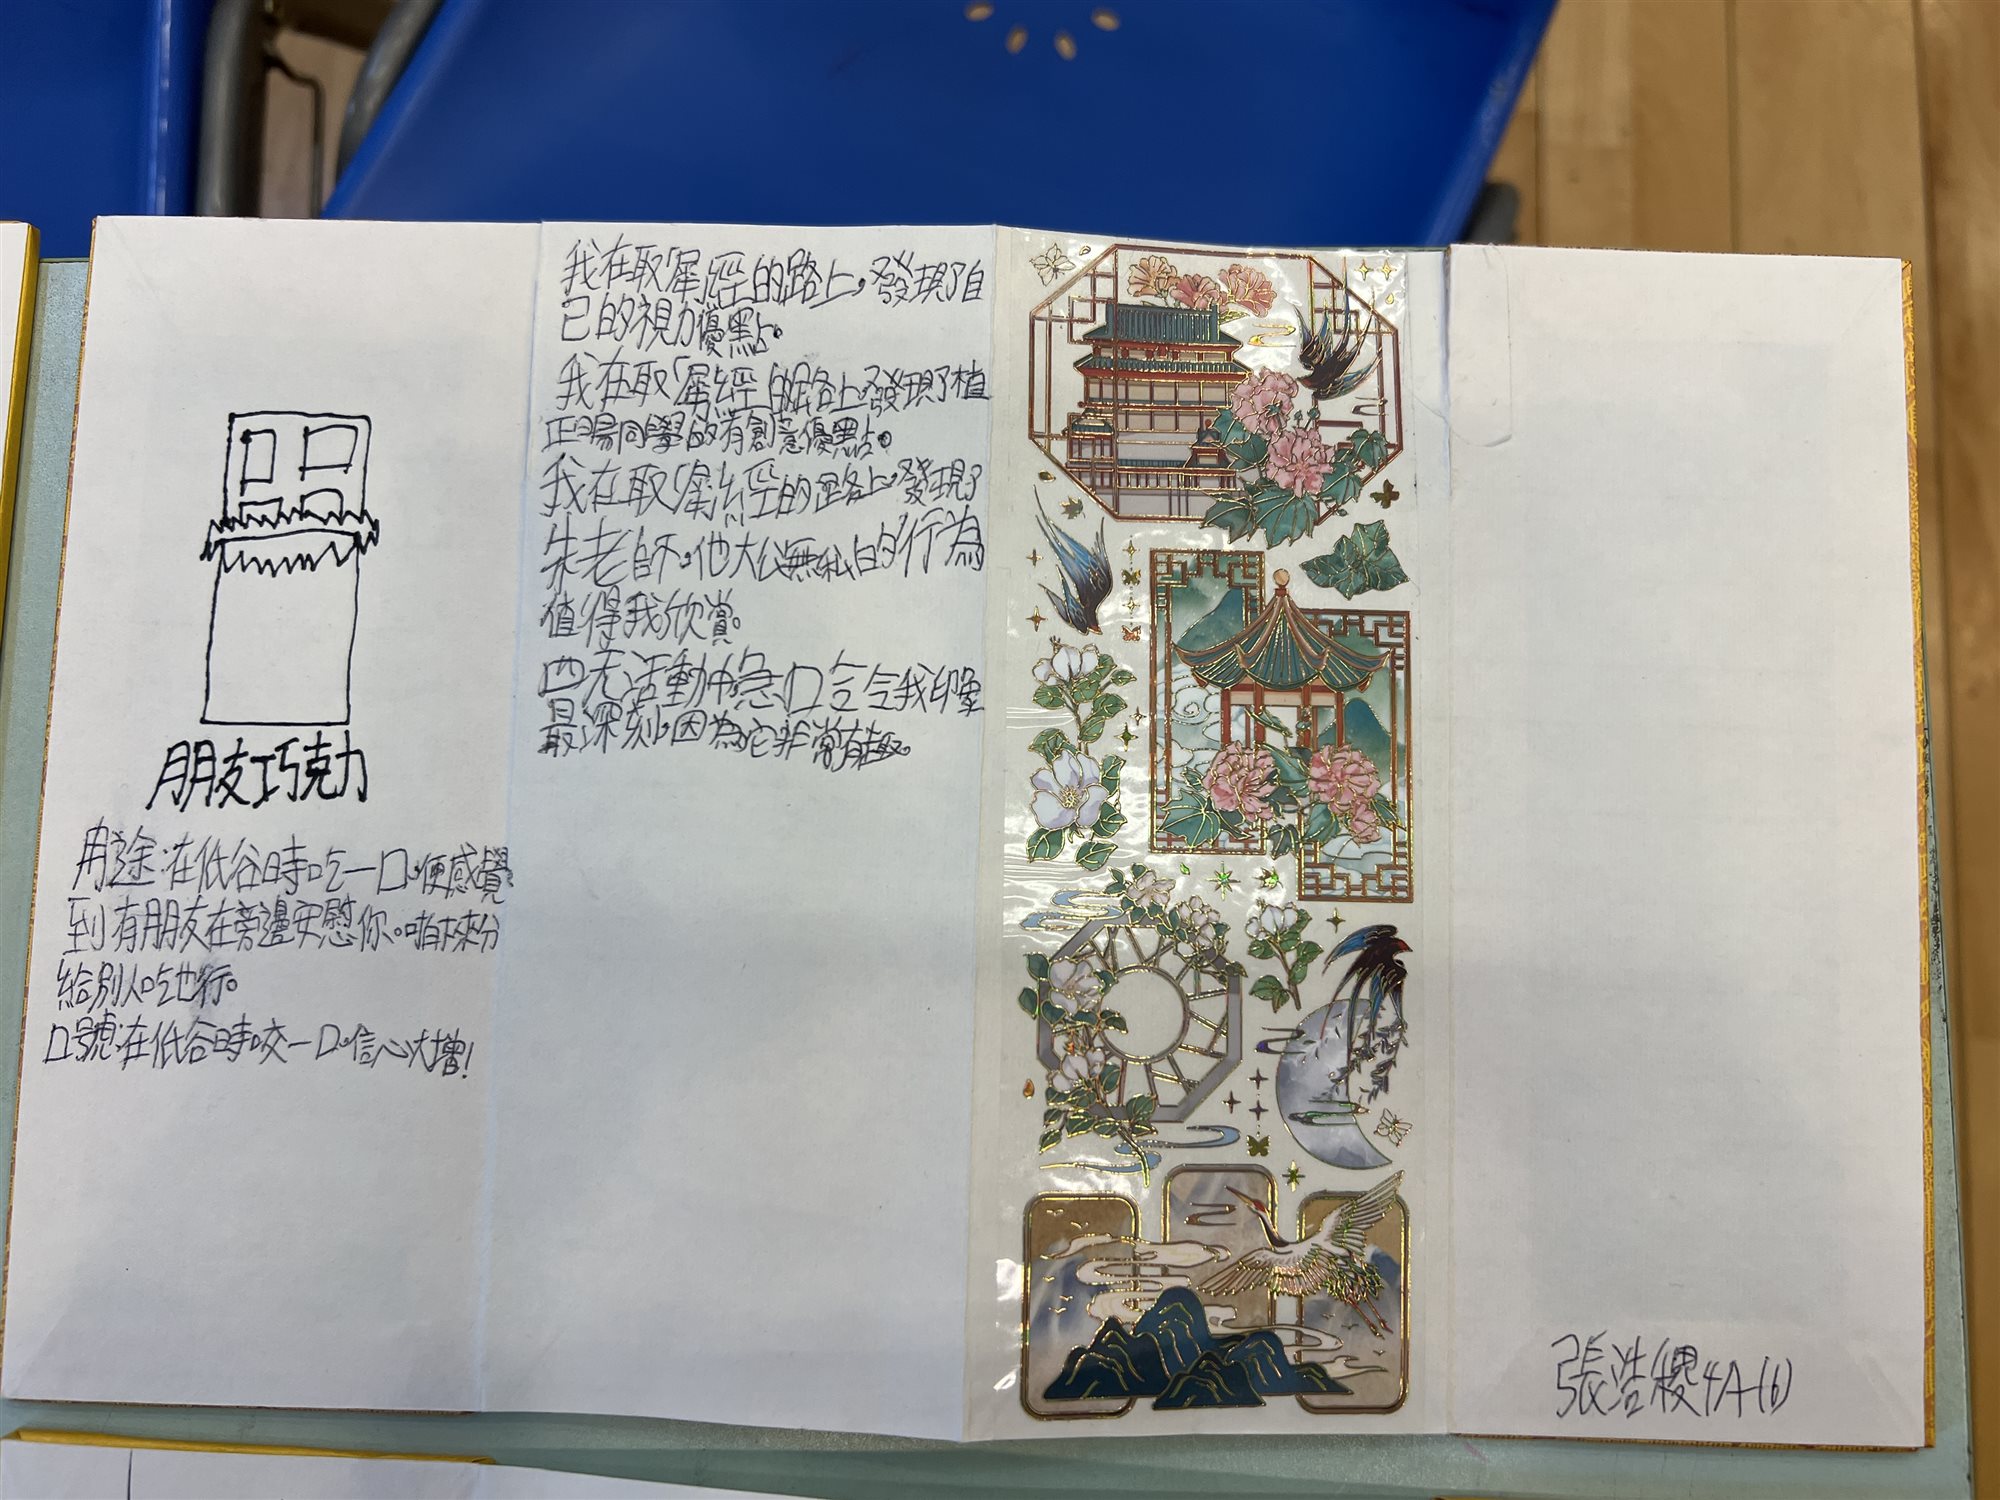 朋友巧克力
用途:在低谷時吃一口,便感覺
到有朋友在旁邊安慰你。啪下來分
給別人吃也行。
口號:在低谷時咬一口,信心大增!
我在取「犀」經的路上,發現了自
己的視力優點。
我在取「犀」經的路上,發現了植
正陽同學的有創意優點。
我在取「犀」經的路上,發現了
朱老師。他大公無私的行為
值得我欣賞。
四天活動中,急口令令我印象
最深刻,因為它非常有趣。
張浩稷4A(6)